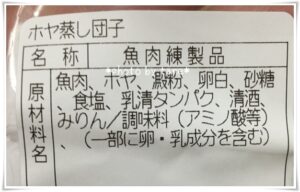 ホヤ蒸し団子
名称 魚肉練製品
原材料名 魚肉、ホヤ、澱粉、卵白、砂糖
、食塩、乳清タンパク、清酒、
みりん/調味料(アミノ酸等)
、(一部に卵・乳成分を含む)